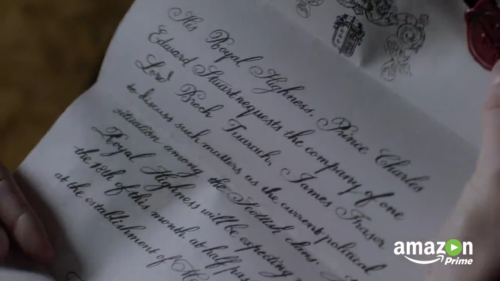 His Royal Highness, Prince Charles
Edward Stuart requests the company of one
Lord Broch Tuarach, James Fraser
to discuss such matters as the current political
situation among the Scottish
Royal Highness will be expecting
the 18th of this month, at half
at the establishment of
amazon
Prime